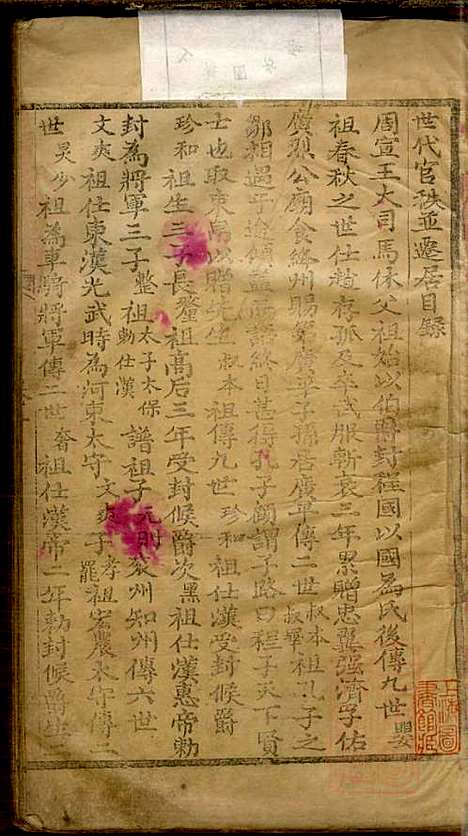 世代官秩並遷居目錄
周宣王大司馬休父祖始以伯爵封程國以國為氏後傳九世嬰
祖春秋之世仕趙存孤及卒武服斬衰三年累贈忠翼强濟孚佑
廣烈公廟食絳州賜第廣平子孫居廣平傳二世叔本祖孔子之
鄒相遇于途傾蓋而語終日甚得孔子顧謂子路曰程子天下賢
士也取束帛以贈先生叔本祖傳九世珍和祖仕漢受封候爵
珍和祖生三子長釐祖高后三年受封候爵次黑祖仕漢惠帝勅
封為將軍三子整祖太子太保勅仕漢譜祖子元則袞州知州傳六世
文爽祖仕東漢光武時為河東太守文爽子孝罷祖宏農太守傳二
世炅少祖為車將將軍傳二世奢祖仕漢帝二年勅封候爵生
上海圖書館藏